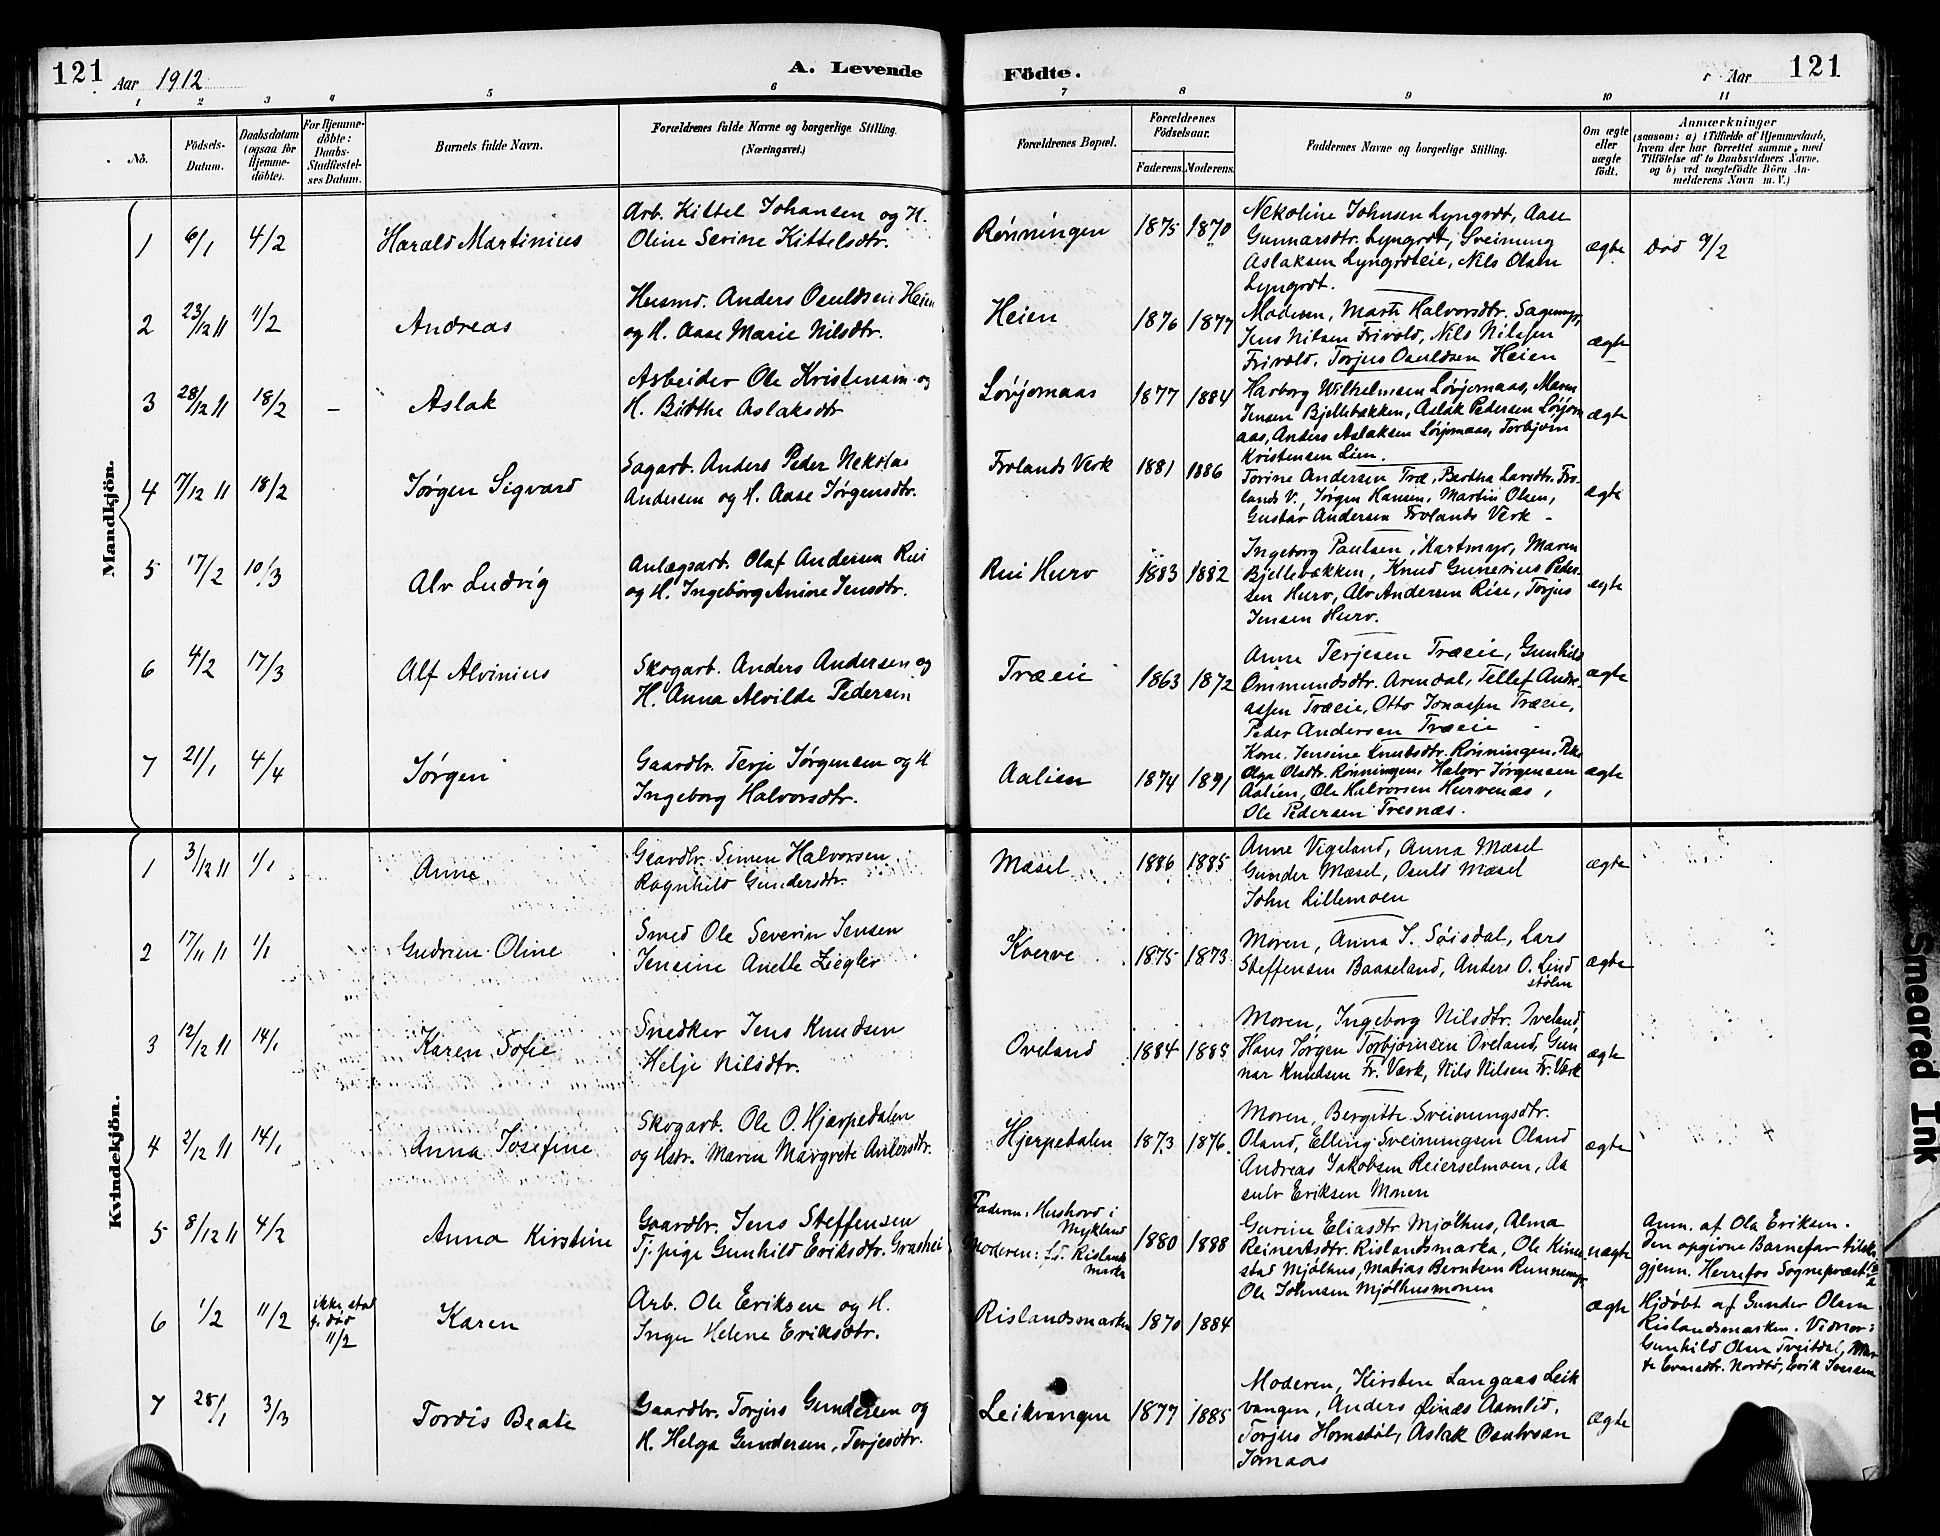 121 Aar 1912 A. Levende Födte. Aar 121
1 2 3 4 5 6 7 8 9 10 11
No.
Födsels-
Datum.
Daabsdatum
(ogsaa for
Hjemme-
döbte).
For Hjemme-
döbte:
Daabs-
Stadfæstel-
ses Datum.
Barnets fulde Navn.
Forældrenes fulde Navne og borgerlige Stilling.
(Næringsvei.)
Forældrenes Bopæl.
Forældrenes
Födselsaar.
Faderens. Moderens.
Faddernes Navne og borgerlige Stilling.
Om ægte
eller
uægte
födt.
Anmærkninger
(saasom: a) i Tilfælde af Hjemmedaab,
hvem der har forrettet samme, med
Tilföielse af to Daabsvidners Navne,
og b) ved uægtefödte Börn An-
melderens Navn m. V.)
Mandkjön.
1 6/1 4/2 Harald Martinius
Arb. Kittel Johansen og H.
Oline Serine Kittelsdtr.
Rønningen 1875 1870
Nekoline Johnsen Lyngrøt, Aase
Gunnarsdtr. Lyngrøt, Sveinung
Aslaksen Lyngrøteie, Nils Olsen
Lyngrøt.
ægte Død 9/2
2 23/12 11 11/2 Andreas
Husmd. Anders Osuldsen Heien
og H. Aase Marie Nilsdtr.
Heien 1876 1877
Moderen, Marti Halvorsdtr. Sagemyr,
Jens Nilsen Frivold, Nils Nilsen
Frivold, Torjus Osuldsen Heien
ægte
3 28/12 11 18/2 – Aslak
Arbeider Ole Kristensen og
H. Birthe Aslaksdtr
Lørjomaas 1877 1884
Harborg Wilhelmsen Lørjomaas, Maren
Jensen Bjellebakken, Aslak Pedersen Lørjom
aas, Anders Aslaksen Lørjomaas, Torbjørn
Kristensen Lien.
ægte
4 7/12 11 18/2 Jørgen Sigvard
Sagarb. Anders Peder Nekolai
Andersen og H. Aase Jørgensdtr.
Frolands Verk 1881 1886
Torine Andersen Træ, Bertha Larsdtr. Fro
lands V., Jørgen Hansen, Martin Olsen,
Gustav Andersen Frolands Verk –
ægte
5 17/2 10/3 Alv Ludvig
Anlægsarb. Olaf Andersen Rui
og H. Ingeborg Anine Jensdtr.
Rui Hurv 1883 1882
Ingeborg Paulsen, Kartmyr, Maren
Bjellebakken, Knud Gunerius Peder-
sen Hurv, Alv Andersen Rise, Torjus
Jensen Hurv.
ægte
6 4/2 17/3 Alf Alvinius
Skogarb. Anders Andersen og
H. Anna Alvilde Pedersen
Træeie 1863 1872
Anne Terjesen Træeie, Gunhild
Ommundsdtr. Arendal, Tellef Andre-
assen Træeie, Otto Jonassen Træeie,
Peder Andersen Træeie
ægte
7 21/1 4/4 Jørgen
Gaardbr. Terje Jørgensen og H
Ingeborg Halvorsdtr.
Aalien 1874 1891
Kone Jensine Knutsdtr. Rønningen, Pike
Olga Olsdtr. Rønningen, Halvor Jørgensen
Aalien, Ole Halvorsen Hurvenes,
Ole Pedersen Tresnæs.
ægte
Kvindekjön.
1 3/12 11 1/1 Anne
Gaardbr. Simen Halvorsen
Ragnhild Gundersdtr.
Mæsel 1886 1885
Anne Vigeland, Anna Mæsel
Gunder Mæsel, Osuld Mæsel
John Lillemoen
ægte
2 17/11 11 1/1 Gudrun Oline
Smed Ole Severin Jensen
Jensine Anette Ziegler
Kverve 1875 1873
Moren, Anna S. Søisdal, Lars
Steffensen Baaseland, Anders O. Lind
stølen
ægte
3 12/12 11 14/1 Karen Sofie
Snedker Jens Knudsen
Helje Nilsdtr.
Oveland 1884 1885
Moren, Ingeborg Nilsdtr. Oveland,
Hans Jørgen Torbjørnsen Oveland, Gun
nar Knudsen Fr. Værk, Nils Nilsen Fr. Værk
ægte
4 2/12 11 14/1 Anna Josefine
Skogarb. Ole O. Hjerpedalen
og Hstr. Maren Margrete Andersdtr.
Hjerpedalen 1873 1876
Moren, Bergitte Sveinungsdtr.
Oland, Elling Sveinungsen Oland
Andreas Jakobsen Reierselmoen, Aa
sulv Eriksen Moren
ægte
5 8/12 11 4/2 Anna Kirstine
Gaardbr. Jens Steffensen
Tj.pige Gunhild Eriksdtr. Grashei
Faderen: Hushovd i
Mykland
Moderen: f.d. Rislands
marka
1880 1888
Gurine Eliasdtr Mjølhus, Alma
Reinertsdtr. Rislandsmarka, Ole Kine
stad Mjølhus, Matias Berntsen Runnemyr,
Ole Johnsen Mjølhusmonen
uægte
Anm. af Ola Eriksen.
Den opgivne Barnefar tilsk.
gjenn. Herrefos Sogneprest
6 1/2 11/2
ikke, stad
f. død
11/2
Karen
Arb. Ole Eriksen og H.
Inger Helene Eriksdtr.
Rislandsmarken 1870 1884
ægte
Hjdøbt af Gunder Olsen
Rislandsmarken. Vidner:
Gunhild Olsen Tveitdal, Mar-
te Evensdtr. Nordbø, Erik Jensen
7 28/1 3/3 Tordis Beate
Gaardbr. Torjus Gundersen og
H. Helga Gundersen, Terjesdtr.
Leikvangen 1877 1885
Moderen, Kirsten Langaas Leik
vangen, Anders Øinæs Aamlid,
Torjus Homdøl, Aslak Osulvsen
Jomaas
ægte
Smeared Ink